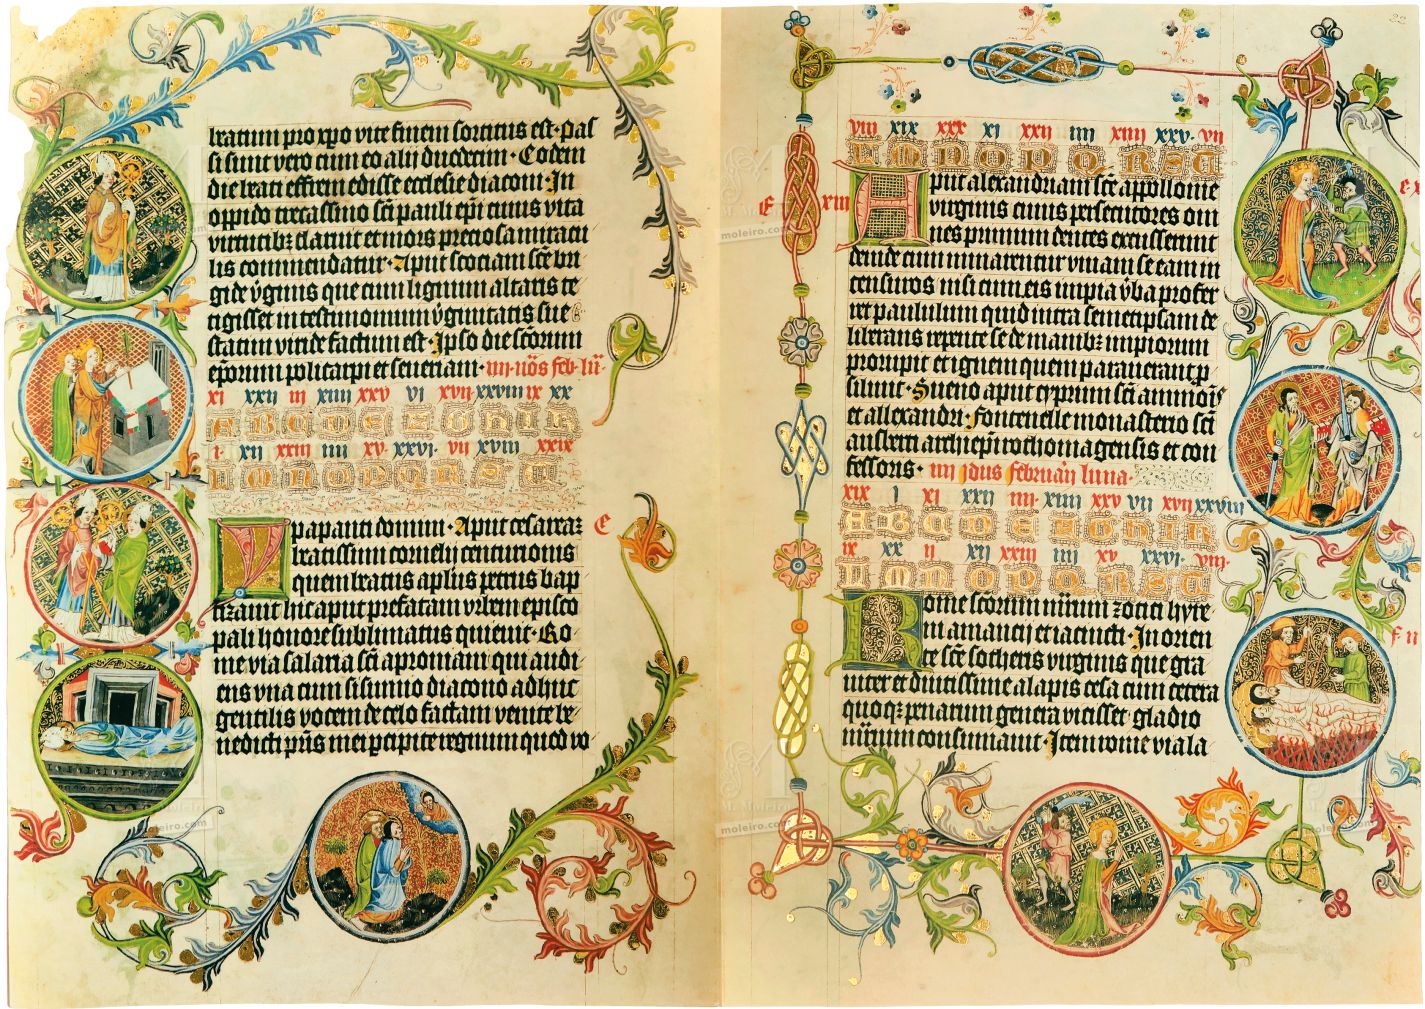 beatum pro xpo vite finem sortitus est · Pas
si sunt vero cum eo alij duodecim · Eodem
die beati effrem edisse ecclesie diaconi · In
oppido trecassino sci pauli epi cuius vita
virtutibz claruit et mors preciosa miracu
lis commendatur · Aput scociam sce bri
gide virginis que cum lignum altaris te
tigisset in testimonium virginitatis sue
statim viride factum est · Ipso die scorum
eporum policarpi et seueriani · iiii · nos feb · lu
xi xxii iii xiiii xxv vi xvii xxviii ix xx
A B C D E F G H I K
i · xii xxiii iiii xv · xxvi · vii xviii xxix
L M N O P Q R S T
Ypapanti domini · Aput cesaream e
beatissimi cornelij centurionis
quem beatus aplus petrus bap
tizauit hic aput prefatam vrbem episco
pali honore sublimatus quieuit · Ro
me via salaria sci aproniani qui audi
ens vna cum sisinnio diacono adhuc
gentilis vocem de celo factam venite be
nedicti pris mei percipite regnum quod vo
22
viii xix xxx xi xxii iiii xiiii xxv · vii
L M N O P Q R S T
Aput alexandriam sce appollonie
virginis cuius persecutores om
nes primum dentes excusserunt
deinde cum minarentur viuam se eam in
censuros nisi cum eis impia vba profer
ret paululum quid intra semetipsam de
liberans repente se de manibz impiorum
prorupit et ignem quem parauerant
siluit · Sueno aput cyprum sci ammonis
et allexandri · Fontenelle monasterio sci
ansberti archiepi rothomagensis et con
fessoris · iiii idus februarii luna ·
xix i xi xxii iiii xiiii xxv vii xvii xxviii
A B C D E F G H I K
ix xx ii xii xxiii iiii xv xxvi · viii ·
L M N O P Q R S T
Rome scorum mrum zotici hyre
nei amancij et iacincti · In orien
te sce sotheris virginis que gra
uiter et diutissime alapis cesa cum cetera
quoqz penarum genera vicisset gladio
mrium consumauit · Item rome via la
M. Moleiro
moleiro.com